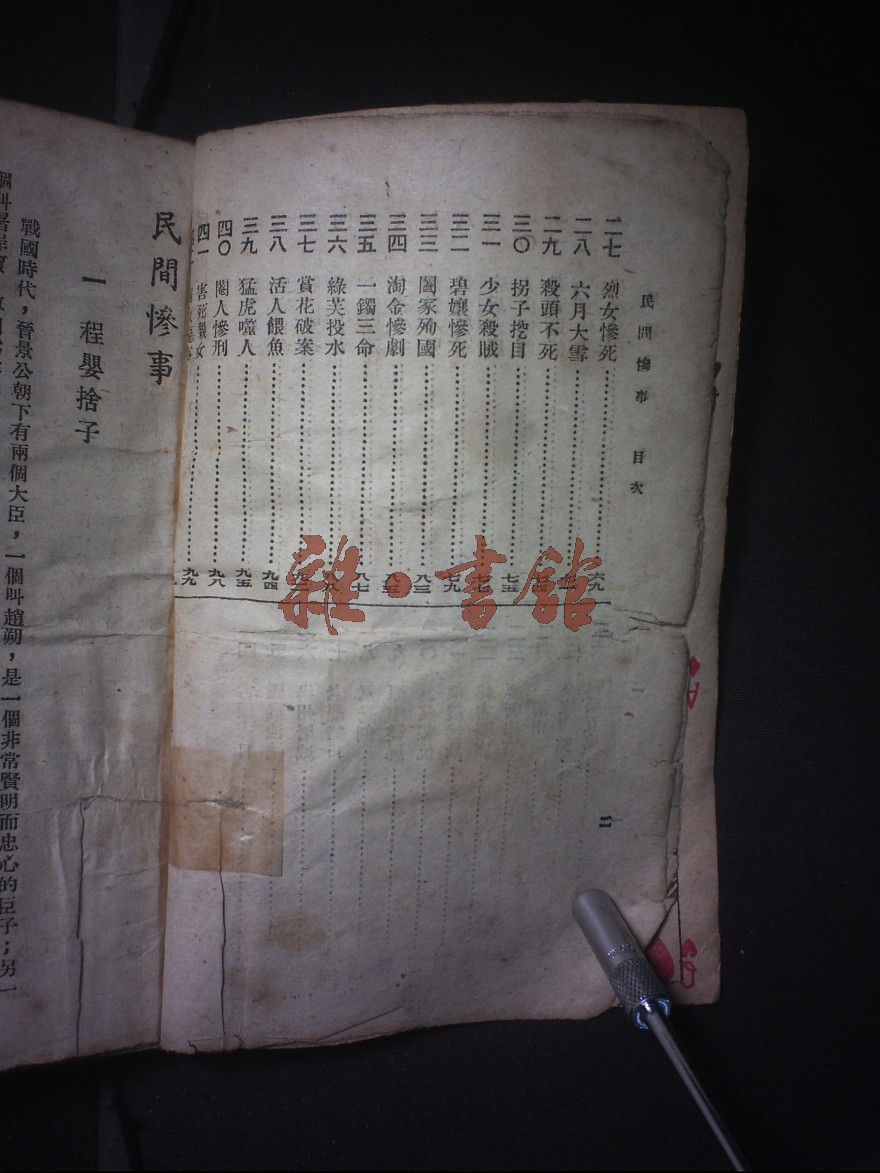 民間慘事 目次
二七 烈女慘死 六九
二八 六月大雪
二九 殺頭不死
三〇 拐子挖目 七五
三一 少女殺賊 七七
三二 碧孃慘死 七九
三三 闔家殉國 八三
三四 淘金慘劇
三五 一鐲三命 八七
三六 綠芙投水
三七 賞花破案
三八 活人餵魚 九四
三九 猛虎噬人 九五
四〇 閹人慘刑 九八
四一 害死親女 九九
二
雜·書館
民間慘事
一 程嬰捨子
戰國時代，晉景公朝下有兩個大臣，一個叫趙朔，是一個非常賢明而忠心的臣子；另一
個叫屠岸賈